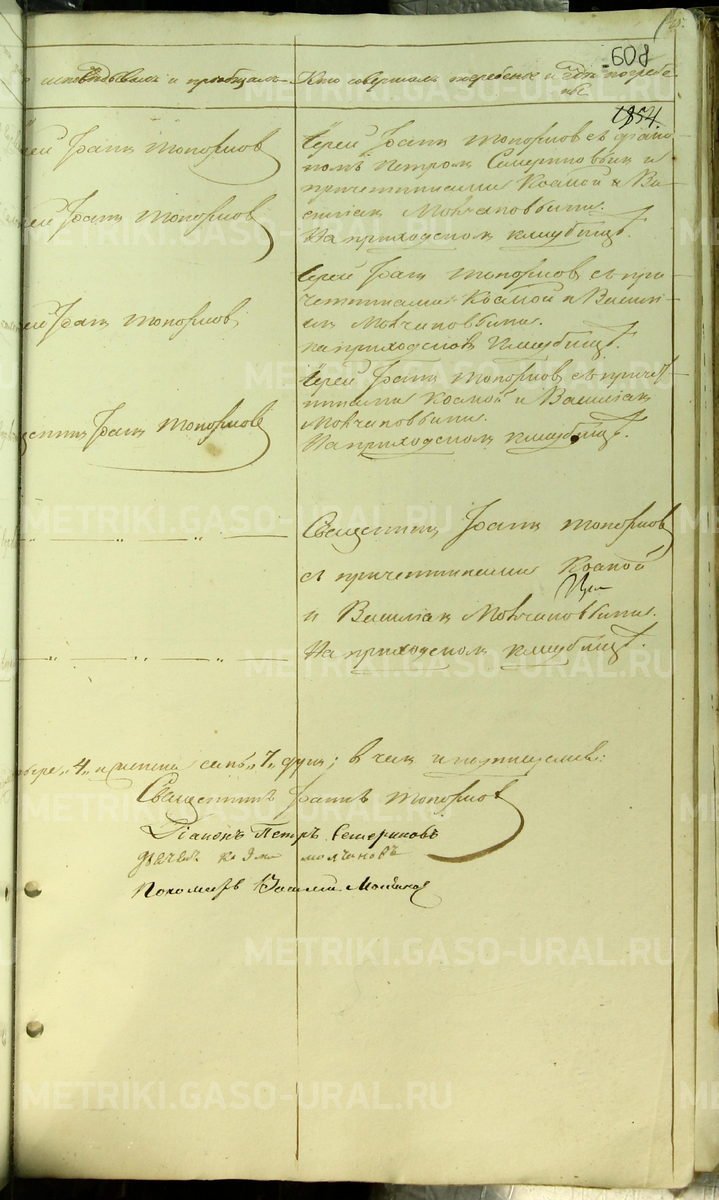 608
исповѣдывалъ и пріобщалъ
Кто совершалъ погребеніе и гдѣ погребены
1854.
рей Іоаннъ Топорковъ
Іерей Іоаннъ Топорковъ съ діакономъ Петромъ Семериковымъ и
причетниками Космой и Василіемъ Молчановыми.
На приходскомъ кладбищѣ.
рей Іоаннъ Топорковъ
Іерей Іоаннъ Топорковъ съ причетниками Космой и Василіемъ Молчановыми.
на приходскомъ кладбищѣ.
рей Іоаннъ Топорковъ
Іерей Іоаннъ Топорковъ съ причетниками Космой и Василіемъ
Молчановыми.
На приходскомъ кладбищѣ.
щенникъ Іоаннъ Топорковъ
Священникъ Іоаннъ Топорковъ
съ причетниками Космой
и Василіемъ Молчановыми.
На приходскомъ кладбищѣ.
"4" и женска семь "7" душъ; въ чемъ и подписуемся:
Священникъ Іоаннъ Топорковъ
Діаконъ Петръ Семериковъ
Дьячекъ Козма Молчановъ
Пономарь Василій Молчановъ
METRIKI.GASO-URAL.RU